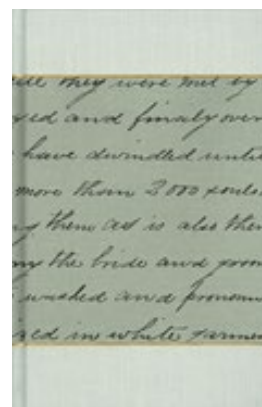 till they were met by
yed and finaly over
have dwindled until
more than 2000 souls.
them as is also the
the bride and groom
washed and pronoun
in white garmen